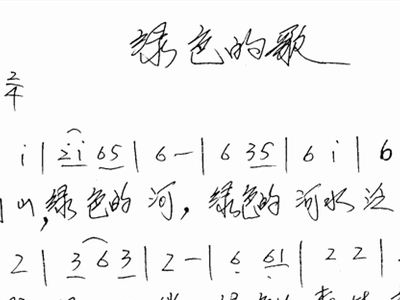 绿色的歌
2/4
i | 2i 65 | 6 - | 6 35 | 6 i | 6
山,绿色的河,绿色的河水泛
2 | 3 6 3 | 2 - | 6 61 | 2 2 |